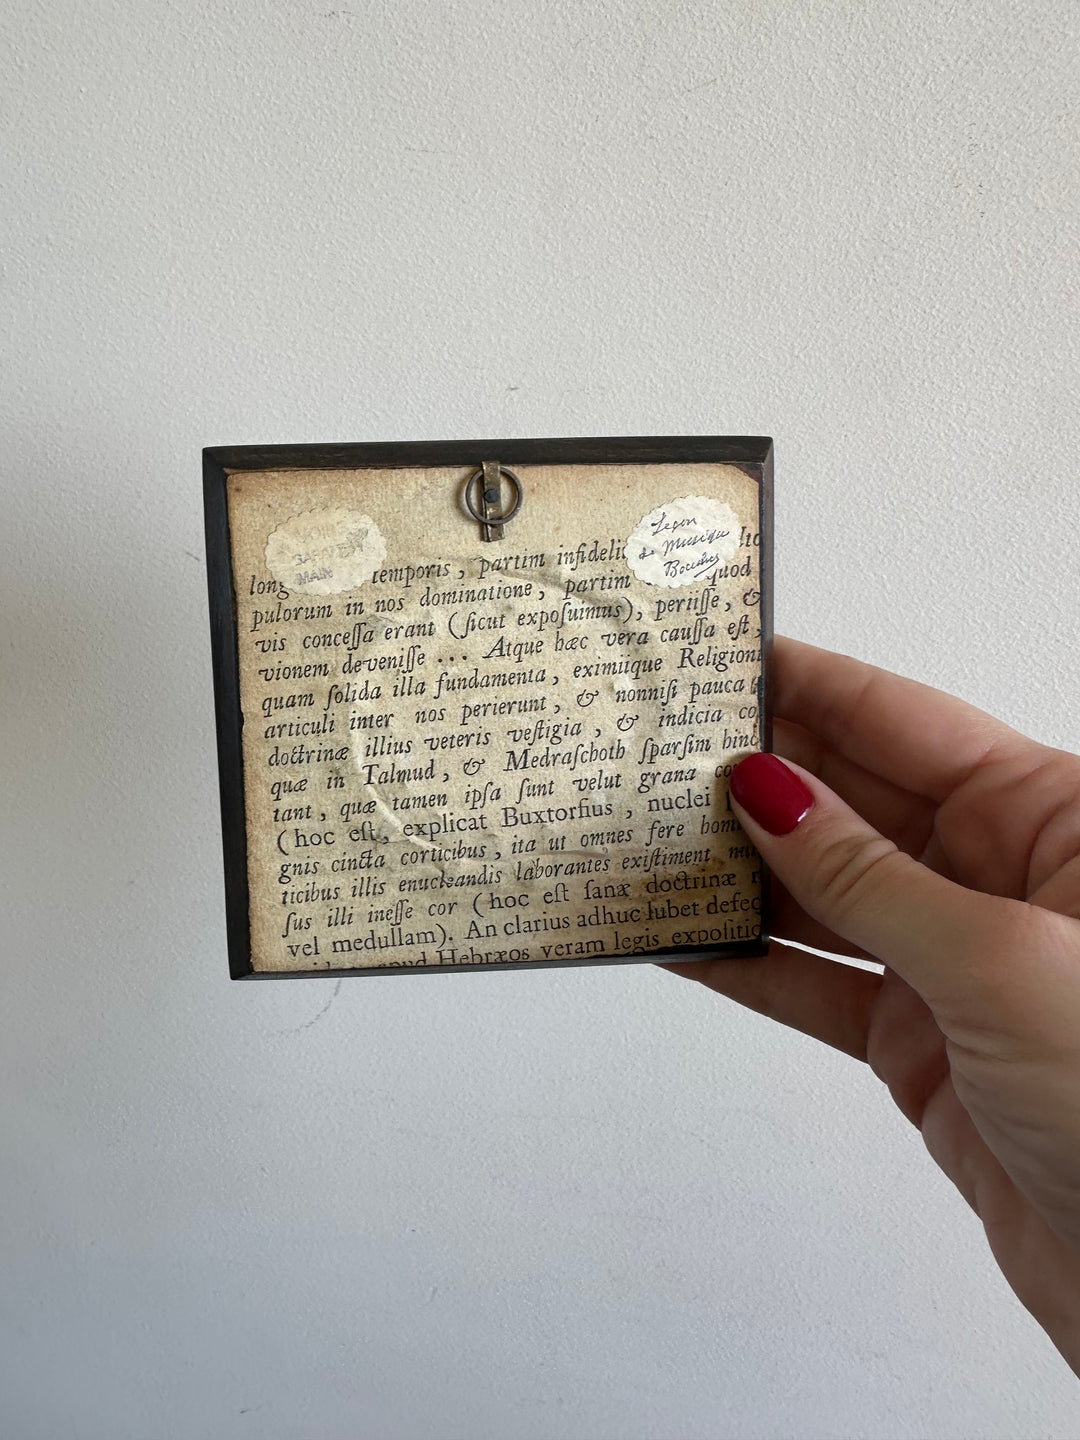 MAIN
Leçon
de Musique
temporis, partim infideli
pulorum in nos dominatione, partim quod
vis conceſſa erant (ſicut expoſuimus), periiſſe, &
vionem deveniſſe ... Atque hæc vera cauſſa eſt,
quam ſolida illa fundamenta, eximiique Religioni
articuli inter nos perierunt, & nonniſi pauca
doctrinæ illius veteris veſtigia, & indicia co
quæ in Talmud, & Medraſchoth ſparſim hinc
tant, quæ tamen ipſa ſunt velut grana
(hoc eſt, explicat Buxtorfius, nuclei
gnis cincta corticibus, ita ut omnes fere hom
ticibus illis enucleandis laborantes exiſtiment
ſus illi ineſſe cor (hoc eſt ſanæ doctrinæ
vel medullam). An clarius adhuc lubet defec
apud Hebræos veram legis expoſitio